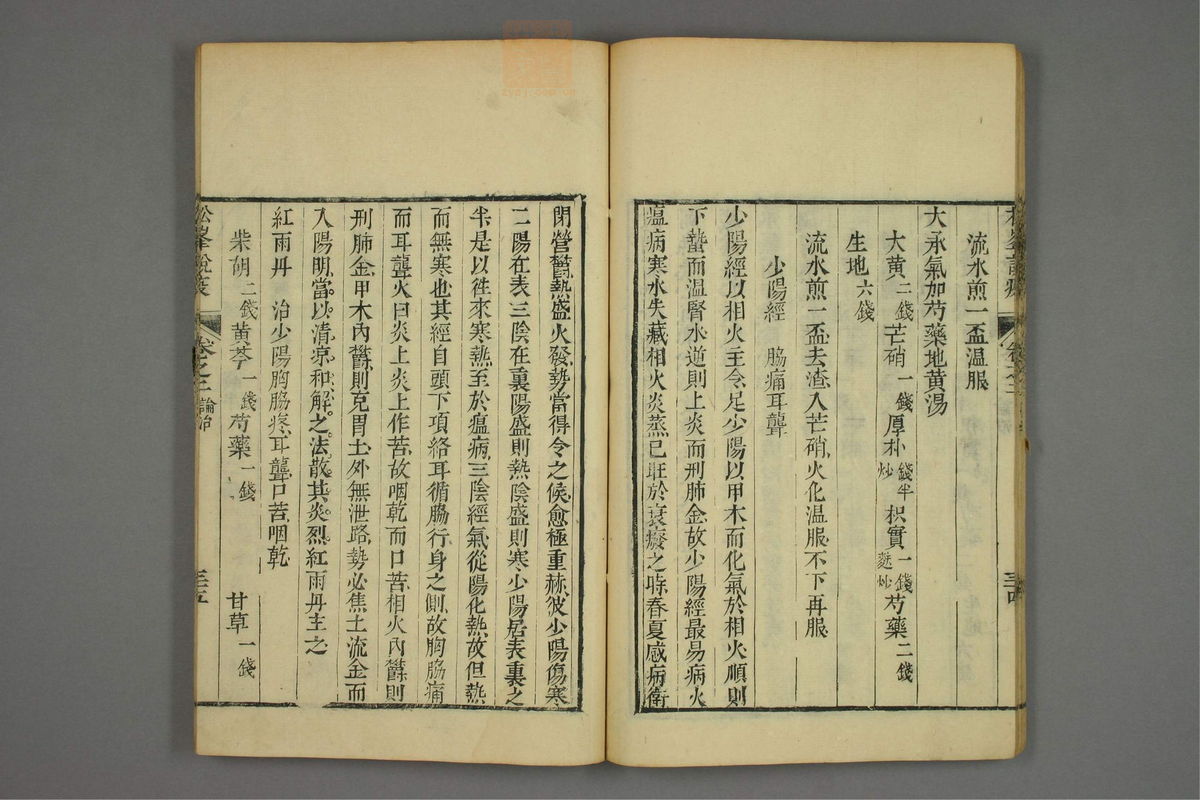 流水煎一盃温服
大承氣加芍藥地黄湯
大黄二錢芒硝一錢厚朴錢半炒枳實一錢麩炒芍藥二錢
生地六錢
流水煎一盃去渣入芒硝火化温服不下再服
少陽經　脇痛耳聾
少陽經以相火主令足少陽以甲木而化氣於相火順則
下蟄而温腎水道則上炎而刑肺金故少陽經最易病火
瘟病寒水失藏相火炎蒸已旺於衰癈之時春夏感病衛
閉營鬱熱盛火發勢當得令之候愈極重赫彼少陽傷寒
二陽在表三陰在裏陽盛則熱陰盛則寒少陽居表裏之
半是以徃來寒熱至於瘟病三陰經氣從陽化熱故但熱
而無寒也其經自頭下項絡耳循脇行身之側故胸脇痛
而耳聾火曰炎上炎上作苦故咽乾而口苦相火内鬱則
刑肺金甲木内鬱則克胃土外無泄路勢必焦土流金而
入陽明當以清凉和解之法散其炎烈紅雨丹主之
紅雨丹　治少陽胸脇疼耳聾口苦咽乾
柴胡二錢黄芩一錢芍藥一錢　甘草一錢
松峯說疫　卷之二論治　三五